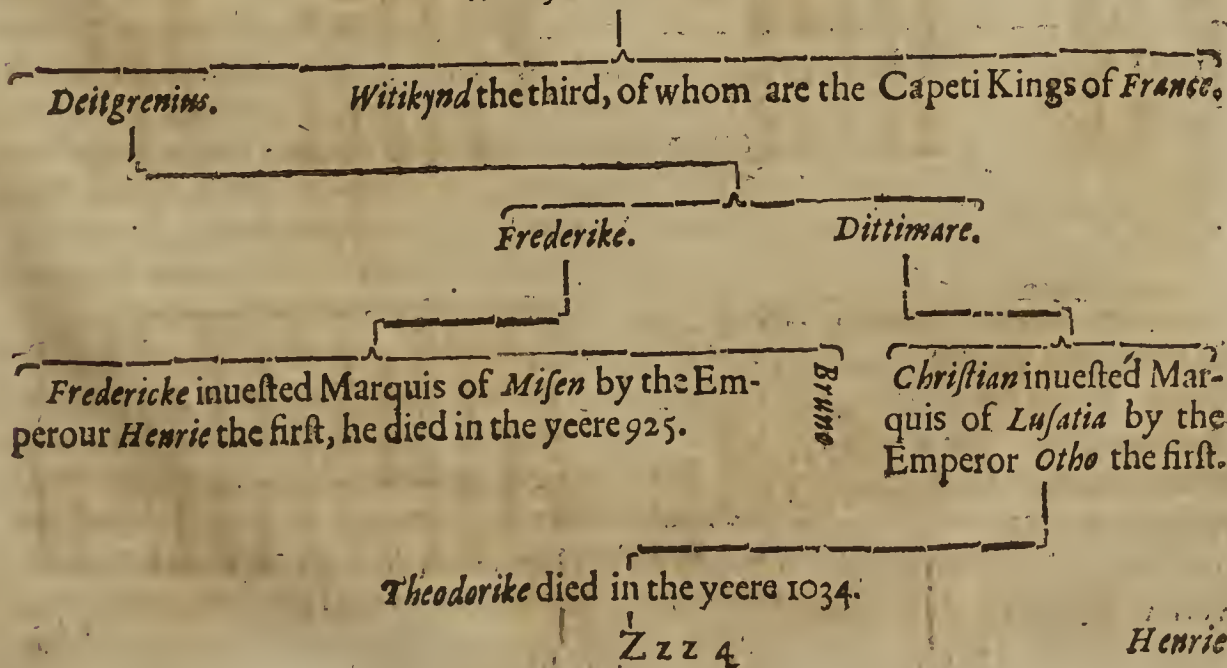 Deitgrenius. Witikynd the third, of whom are the Capeti Kings of France.
Frederike. Dittimare.
Fredericke inueſted Marquis of Miſen by the Em-
perour Henrie the firſt, he died in the yeere 925.
Bruino
Chriſtian inueſted Mar-
quis of Luſatia by the
Emperor Otho the firſt.
Theodorike died in the yeere 1034.
Zzz 4
Henrie